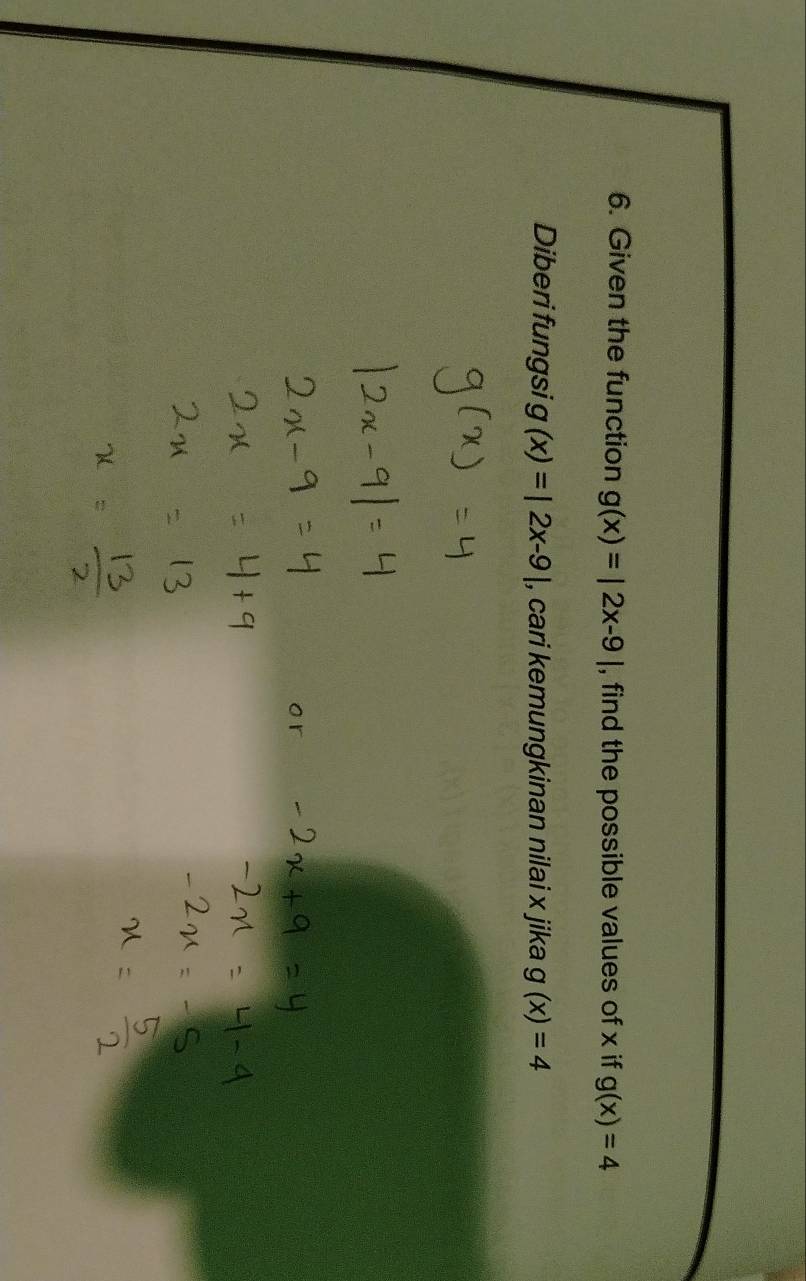 6. Given the function g(x) = | 2x-9 |, find the possible values of x if g(x) = 4
Diberi fungsi g (x) = | 2x-9 |, cari kemungkinan nilai x jika g (x) = 4
g(x) = 4
|2x - 9| = 4
2x - 9 = 4 or -2x + 9 = 4
2x = 4 + 9 -2x = 4 - 9
2x = 13 -2x = -5
x = 13/2 x = 5/2